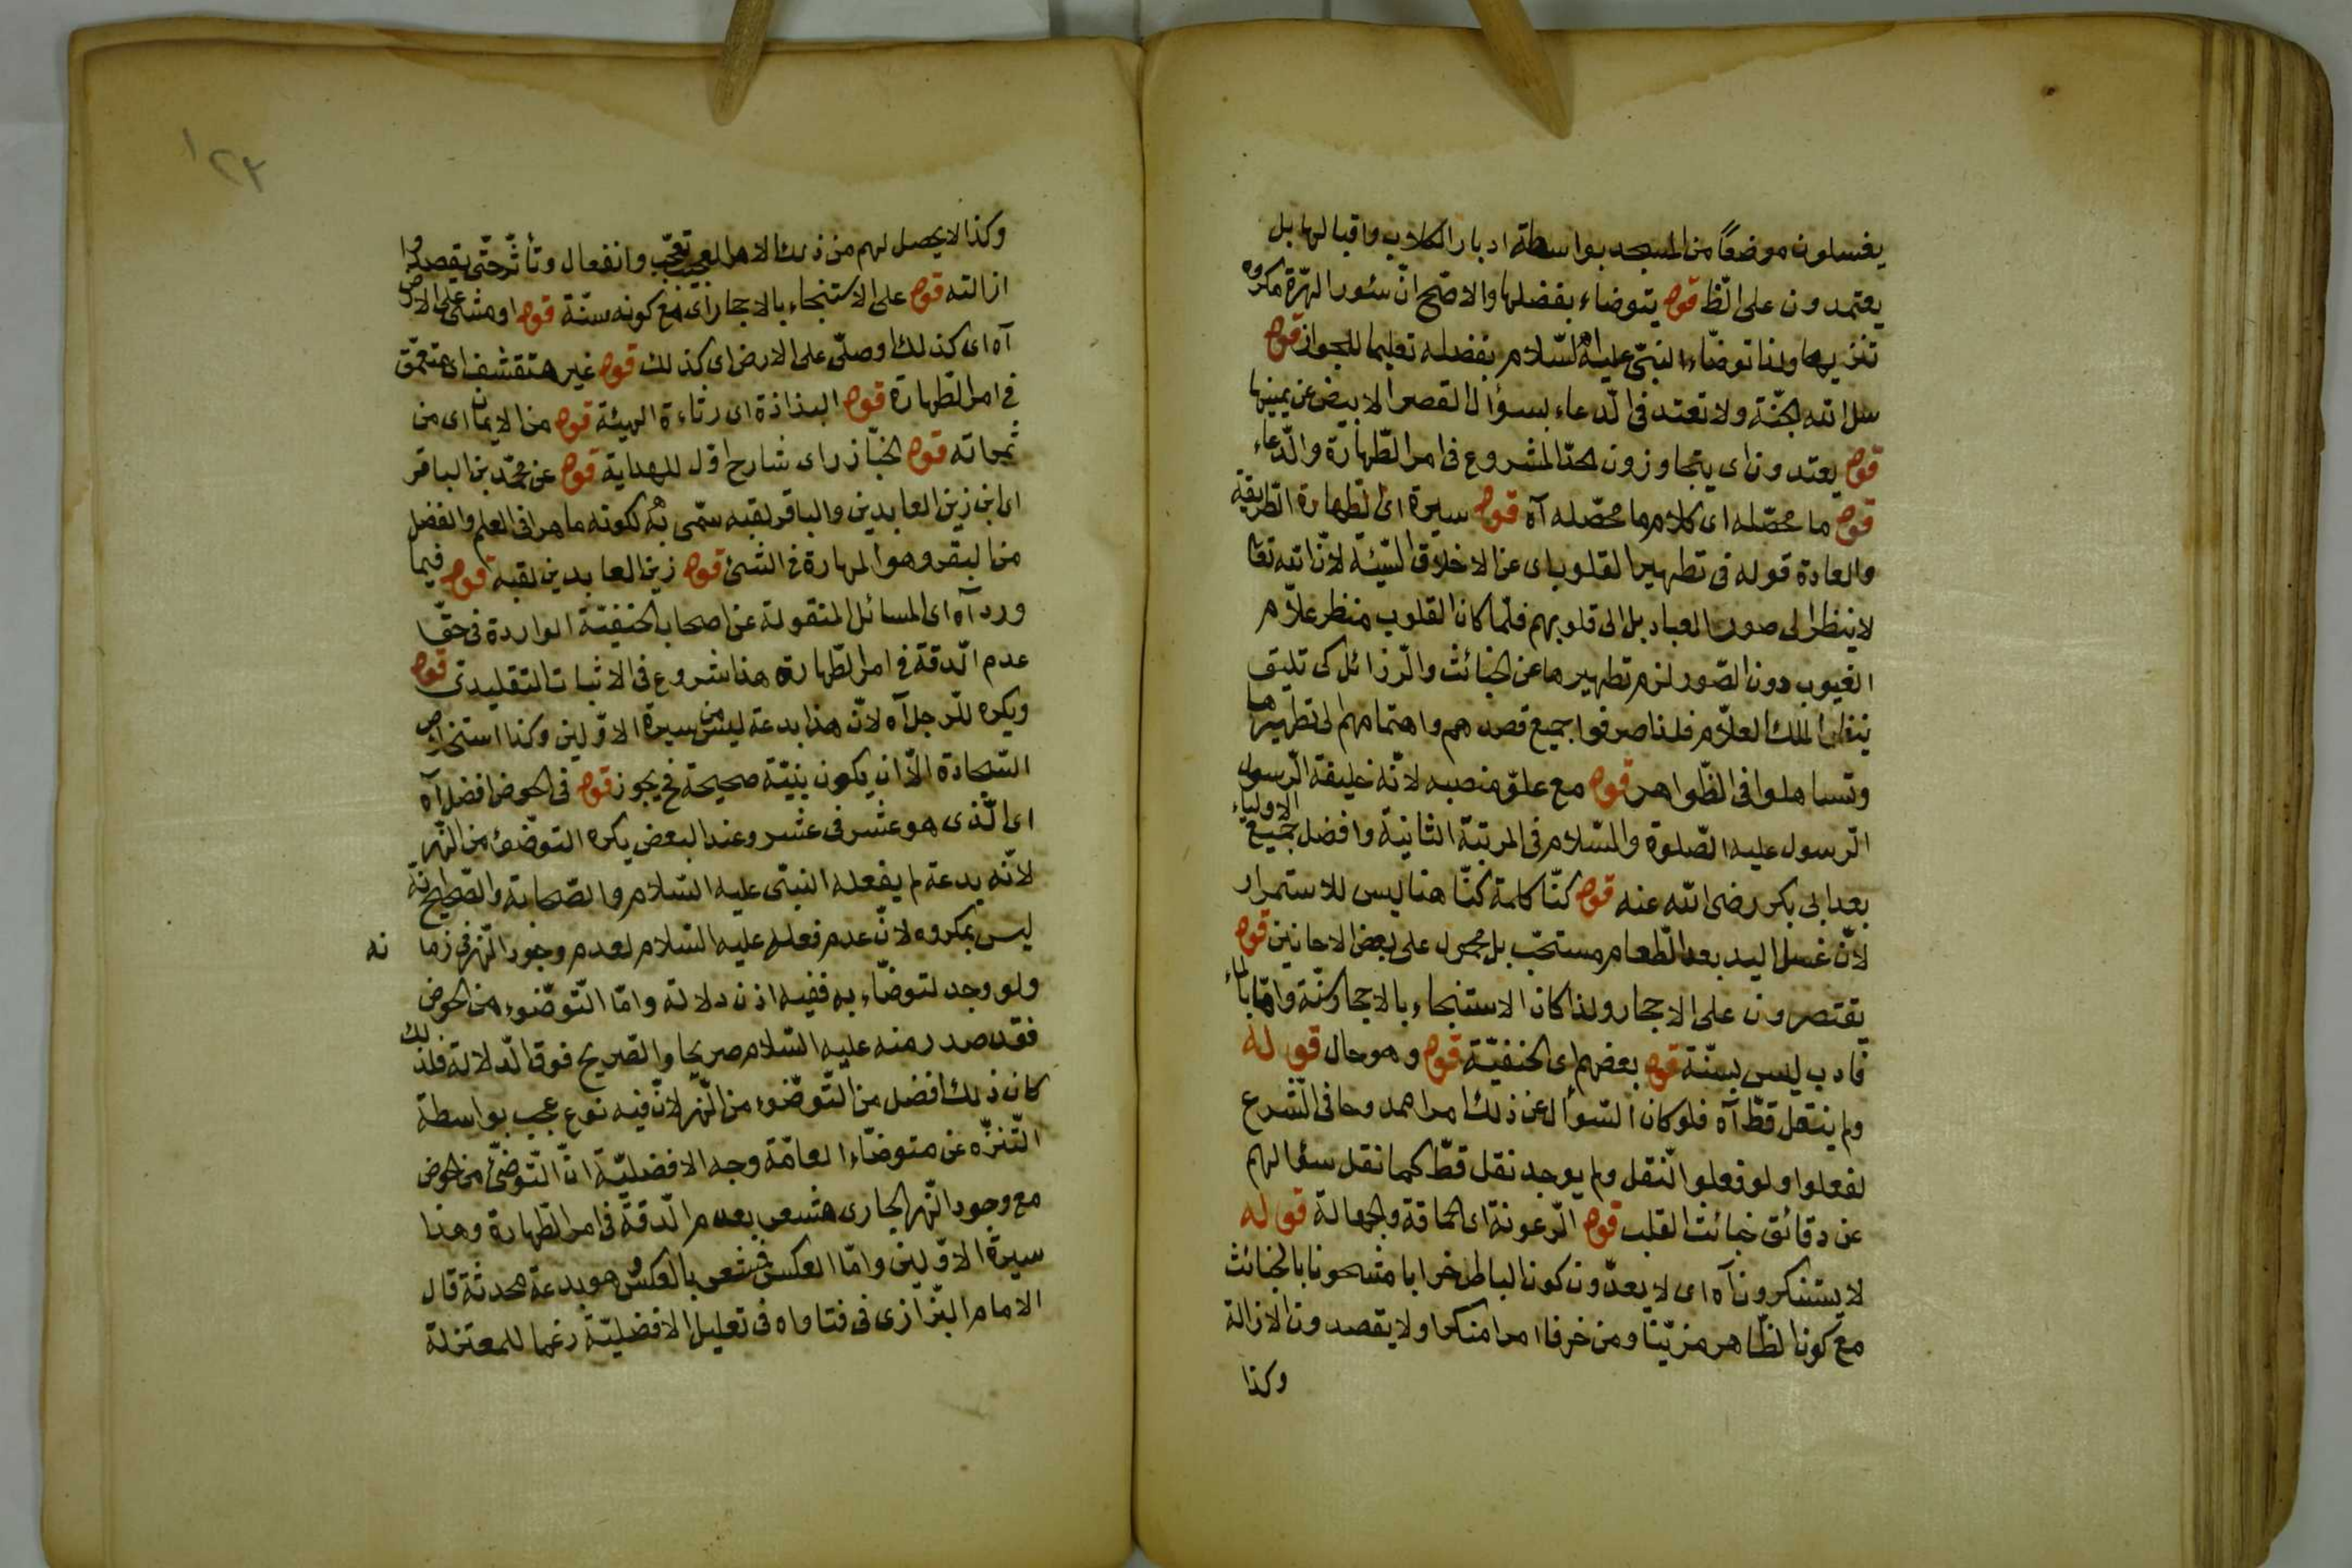 يغسلون موضعًا من المسجد بواسطة ادبار الكلاب واقبالها بل
يعتمدون على الظ قوله يتوضاء بفضلها والاصّح انّ سئور الهرّة مكروه
تنزيها ولذا توضّاء النبّى عليه السّلام بفضله تعليما للجواز قوله
سل الله الجنّة ولا تعتد فى الدّعاء بسؤال القصر الابيض عن يمينها
قوله يعتدون اى يتجاوزون الحدّ المشروع فى امر الطّهارة والدّعاء
قوله ما محصّله اى كلام ما محصّله آه قوله سيرة اى الطّهارة الطّريقة
والعادة قوله فى تطهير القلوب اى عن الاخلاق السّيّئة لانّ الله تعا
لا ينظر الى صور العباد بل الى قلوبهم فلمّا كان القلوب منظر علاّم
الغيوب دون الصّور لزم تطهيرها عن الخبائث والرّزائل كى تليق
بنظر الملك العلاّم فلذا صرفوا جميع قصدهم واهتمامهم الى تطهيرها
وتساهلوا فى الظّواهر قوله مع علوّ منصبه لانّه خليفة الرّسول
الرّسول عليه الصّلوة والسّلام فى المرتبة الثانية وافضل جميع الاولياء
بعد ابى بكر رضى الله عنه قوله كنّا كلمة كنّا هنا ليس للاستمرار
لانّ غسل اليد بعد الطّعام مستحّب بل محمول على بعض الاحانين قوله
يقتصرون على الاحجار ولذا كان الاستنجاء بالاحجار سنّة وامّا بالماء
فادب ليس بسنّة قوله بعضهم اى الحنفيّة قوله وهو حال قوله
ولم ينقل قطّ آه فلو كان السّوأل عن ذلك امرا ممدوحا فى الشّرع
لفعلوا ولو فعلوا لنقل ولم يوجد نقل قطّ كما نقل سؤالهم
عن دقائق خبائث القلب قوله الرّعونة اى الحماقة والجهالة قوله
لا يستنكرون آه اى لا يعدّون كون الباطل خرابا مشحونا بالخبائث
مع كون الظّاهر مزيّنا ومزخرفا امرا منكرا ولا يقصدون الازالة
وكذا
١٢٣
وكذا لا يحصل لهم من ذلك الامر العجيب تعجّب وانفعال وتأثّر حتّى يقصدوا
ازالته قوله على الاستنجاء بالاحجار اى مع كونه سنّة قوله او مشى على الارض
آه اى كذلك او صلّى على الارض اى كذلك قوله غير متقشف اى متعمّق
فى امر الطّهارة قوله البذاذة اى رثاءة الهيئة قوله من الايمان اى من
ثمراته قوله الخبّاز اى شارح اوّل للهداية قوله عن محمّد بن الباقر
اى ابن زين العابدين والباقر لقبه سمّى به لكونه ماهرا فى العلم والفضل
من البقر وهو المهارة فى الشئ قوله زين العابدين لقبه قوله فيما
ورد آه اى المسائل المنقولة عن اصحاب الحنفيّة الواردة فى حقّ
عدم الدّقة فى امر الطّهارة هذا شروع فى الاثبات التقليدى قوله
ويكره للرّجل آه لانّ هذا بدعة ليس من سيرة الاوّلين وكذا استخراص
السّجادة الاّ ان يكون بنيّة صحيحة فح يجوز قوله فى الحوض افضل آه
اى الّذى هو عشر فى عشر وعند البعض يكره التوضّئ من النّهر
لانّه بدعة لم يفعله النبّى عليه السّلام والصّحابة والصّحيح انّه
ليس بمكروه لانّ عدم فعله عليه السّلام لعدم وجود النّهر فى زما نه
ولو وجد لتوضّاء به ففيه اذن دلالة وامّا التّوضّوء من الحوض
فقد صدر منه عليه السّلام صريحا والصّريح فوق الدّلالة فلذلك
كان ذلك افضل من التّوضّوء من النّهر لانّ فيه نوع عجب بواسطة
التّنزّه عن متوضّاء العامّة وجه الافضليّة انّ التّوضّئ من الحوض
مع وجود النّهر الجارى مشعر بعدم الدّقة فى امر الطّهارة وهذا
سيرة الاوّلين وامّا العكس فمشعر بالعكس وهو بدعة محدثة قال
الامام البّزازى فى فتاواه فى تعليل الافضليّة رغما للمعتزلة